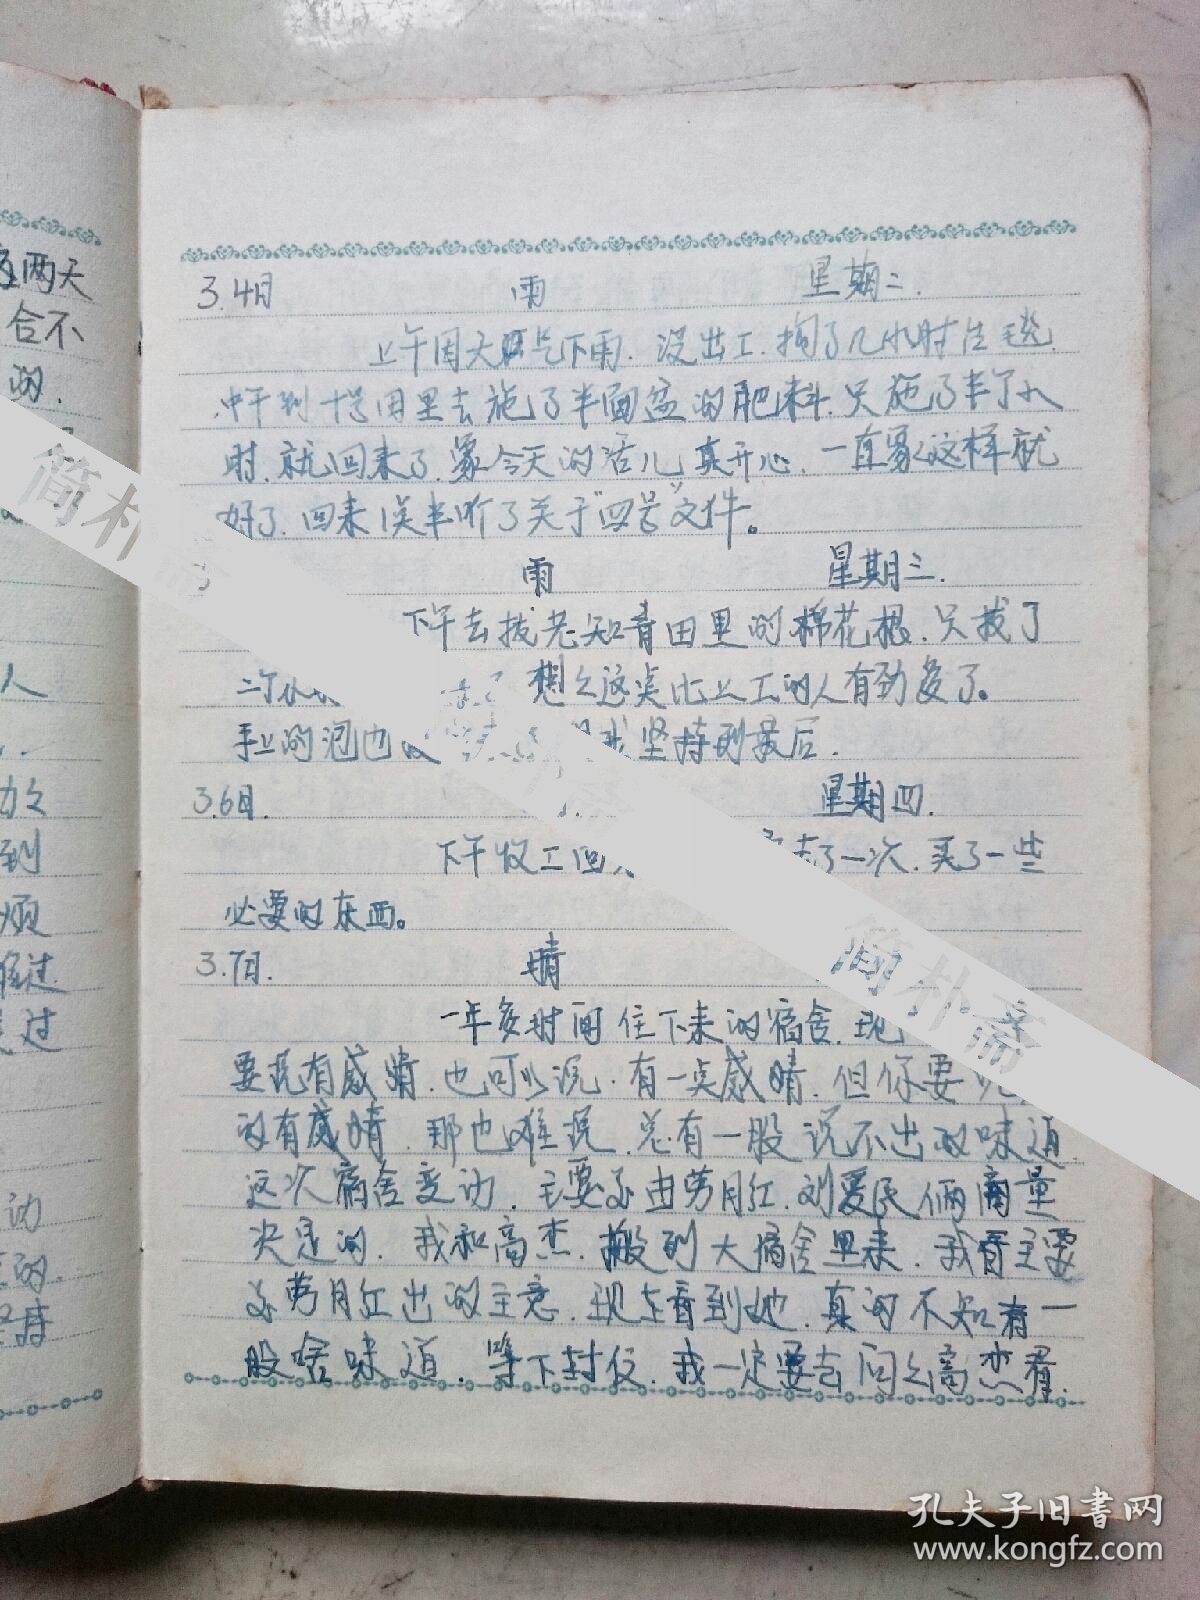 至两天
合不
的.
人
力么
到
烦
难过
过
动
的.
坚持
3.4日 雨 星期二.
上午因天气下雨.没出工.掏了几小时
中午到田里去施了半面盆的肥料.只施了半个小
时.就回来了.象今天的活儿真开心.一直象这样就
好了.回来误半听了关于"四号"文件。
雨 星期三.
下午去拔老知青田里的棉花根.只拔了
二个小 想么这点比上工的人有劲多了。
手上的泡也 坚持到最后.
3.6日. 星期四.
下午收工回 去了一次.买了一些
必要的东西。
3.7日. 晴
一年多时间住下来的宿舍.现
要说有感情.也可以说.有一点感情.但你要
的有感情.那也难说.总有一股说不出的味道.
这次宿舍变动.主要是由劳月红.刘爱民俩商量
决定的.我和高杰.搬到大宿舍里来.我看主要
是劳月红出的主意.现在看到她.真的不知有一
股啥味道.等下封信.我一定要去问么高杰看.
简朴斋
简朴斋
孔夫子旧书网
www.kongfz.com